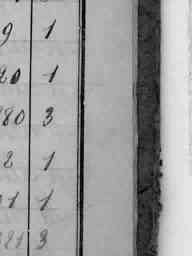 9 1
20 1
280 3
2 1
01 1
321 3